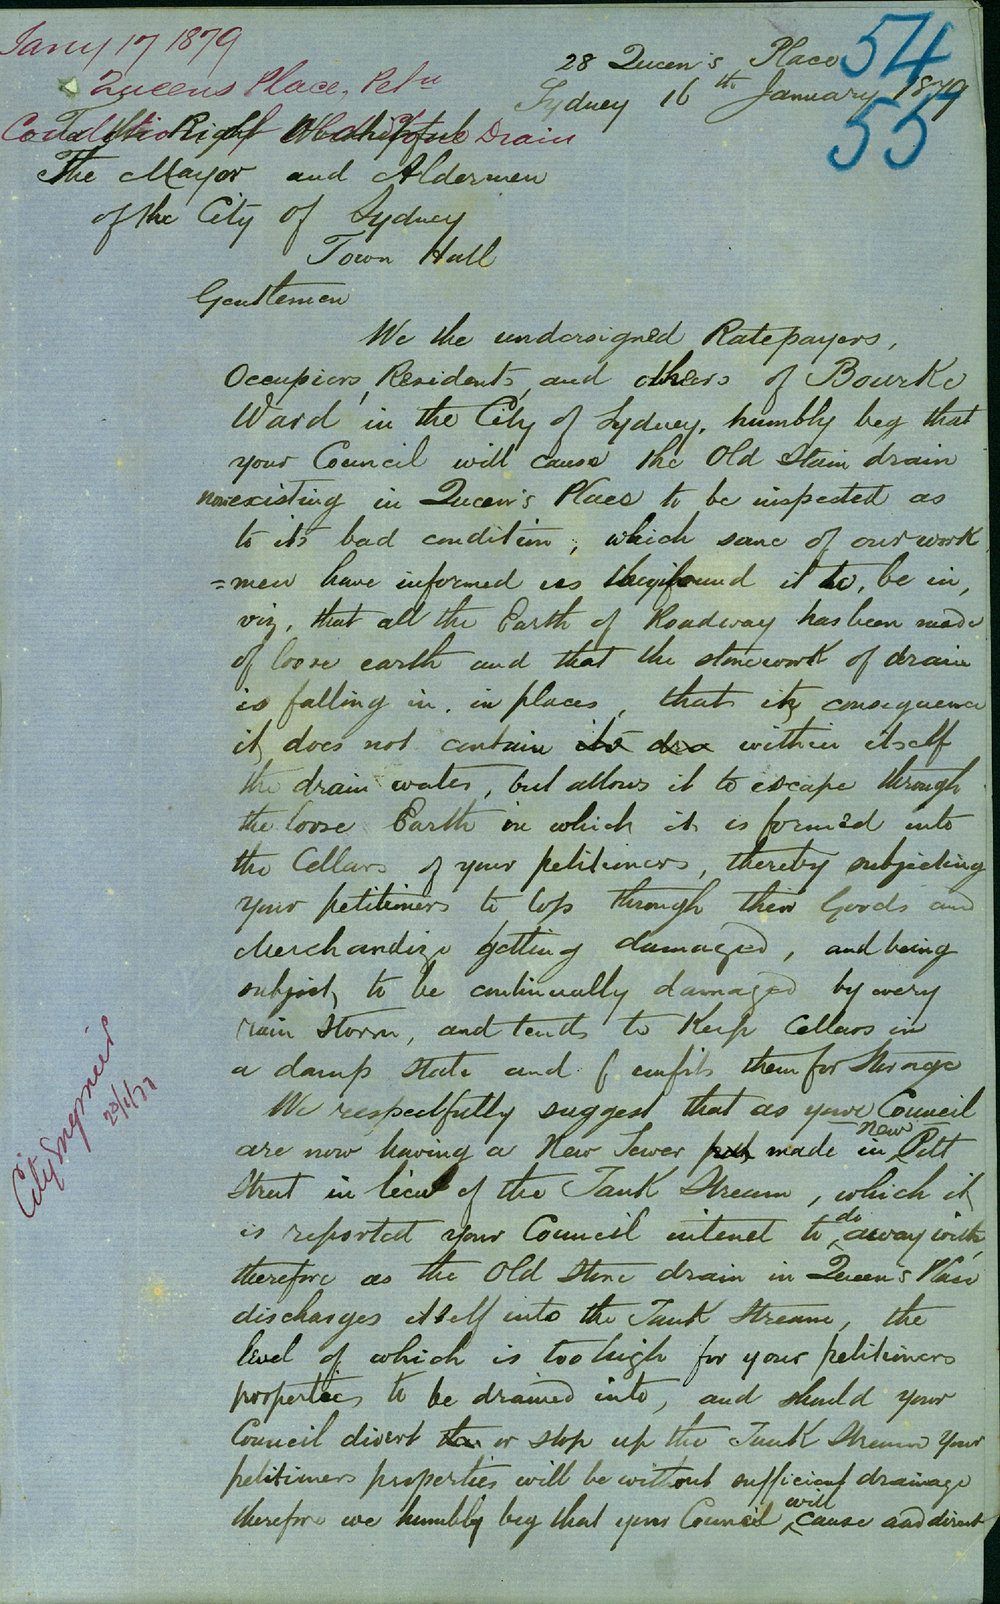 Jany 17 1879
Queens Place, Petn
Drain
54
55
28 Queen's Place
Sydney 16th January 1879
The Mayor and Aldermen
of the City of Sydney
Town Hall
Gentlemen
We the undersigned Ratepayers,
Occupiers, Residents, and others of Bourke
Ward in the City of Sydney, humbly beg that
your Council will cause the Old Stain drain
now existing in Queen's Place to be inspected as
to its bad condition, which some of our work
=men have informed us they found it to, be in,
viz, that all the Earth of Roadway has been made
of loose earth and that the stonework of drain
is falling in, in places, that in consequence
it does not contain its dra within itself
the drain water, but allows it to escape through
the loose Earth in which it is formed into
the Cellars of your petitioners, thereby subjecting
your petitioners to loss through their Goods and
Merchandize getting damaged, and being
subject to be continually damaged by every
rain Storm, and tends to Keep Cellars in
a damp state and unfits them for Storage
We respectfully suggest that as your Council
are now having a New Sewer made in new Pitt
Street in lieu of the Tank Stream, which it
is reported your Council intend to do away with,
therefore as the Old Stone drain in Queen's Place
discharges itself into the Tank Stream, the
level of which is too high for your petitioners
properties to be drained into, and should your
Council divert the or stop up the Tank Stream your
petitioners properties will be without sufficient drainage
therefore we humbly beg that your Council will cause and direct
City Engineer